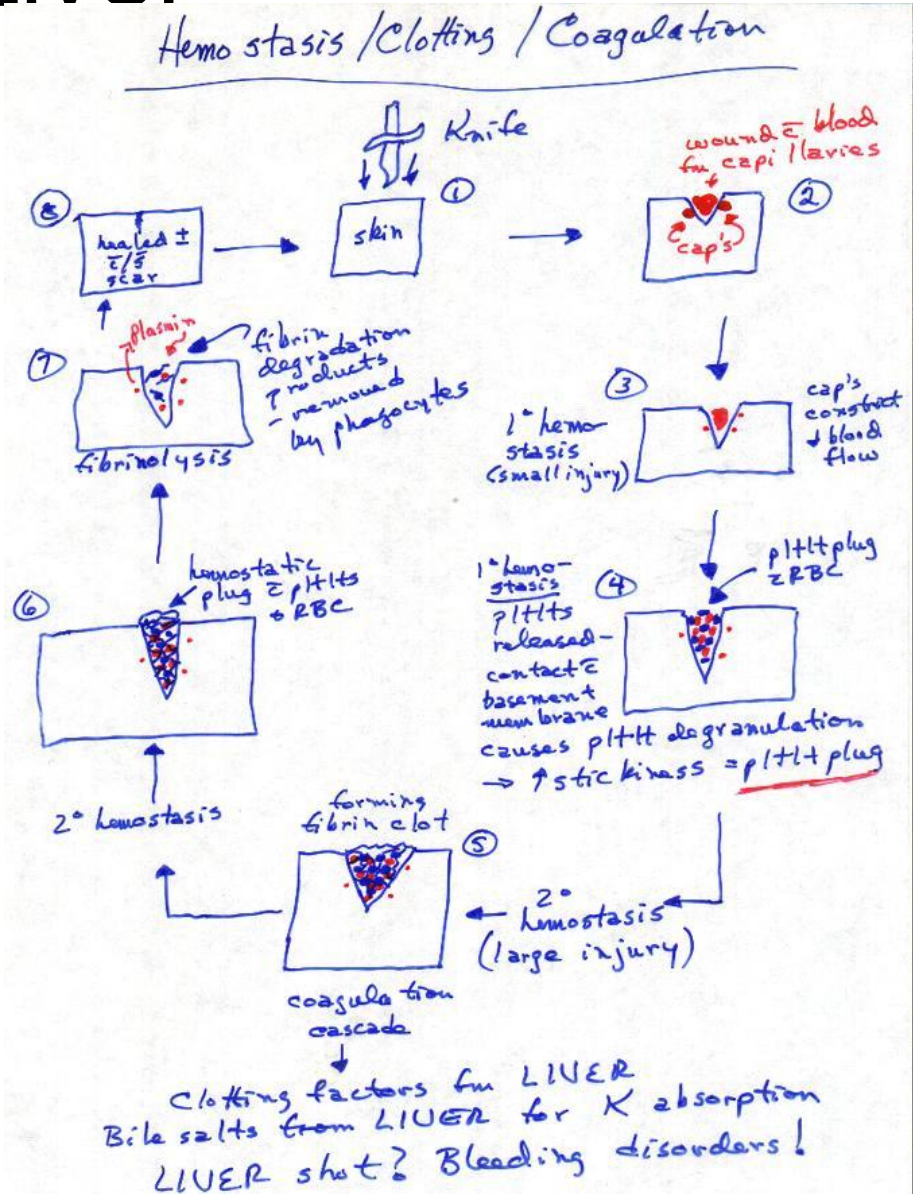 Hemostasis / Clotting / Coagulation
Knife
①
skin
wound c̄ blood
fm capillaries
②
cap's
③
1° hemo-
stasis
(small injury)
cap's
constrict
↓ blood
flow
④
pltlt plug
c̄ RBC
1° hemo-
stasis
pltlts
released -
contact c̄
basement
membrane
causes pltlt degranulation
→ ↑ stickiness = pltlt plug
2°
hemostasis
(large injury)
⑤
forming
fibrin clot
coagulation
cascade
Clotting factors fm LIVER
Bile salts from LIVER for K absorption
LIVER shot? Bleeding disorders!
2° hemostasis
⑥
hemostatic
plug c̄ pltlts
& RBC
⑦
plasmin
fibrin
degradation
products
- removed
by phagocytes
fibrinolysis
⑧
healed ±
c̄/s̄
scar